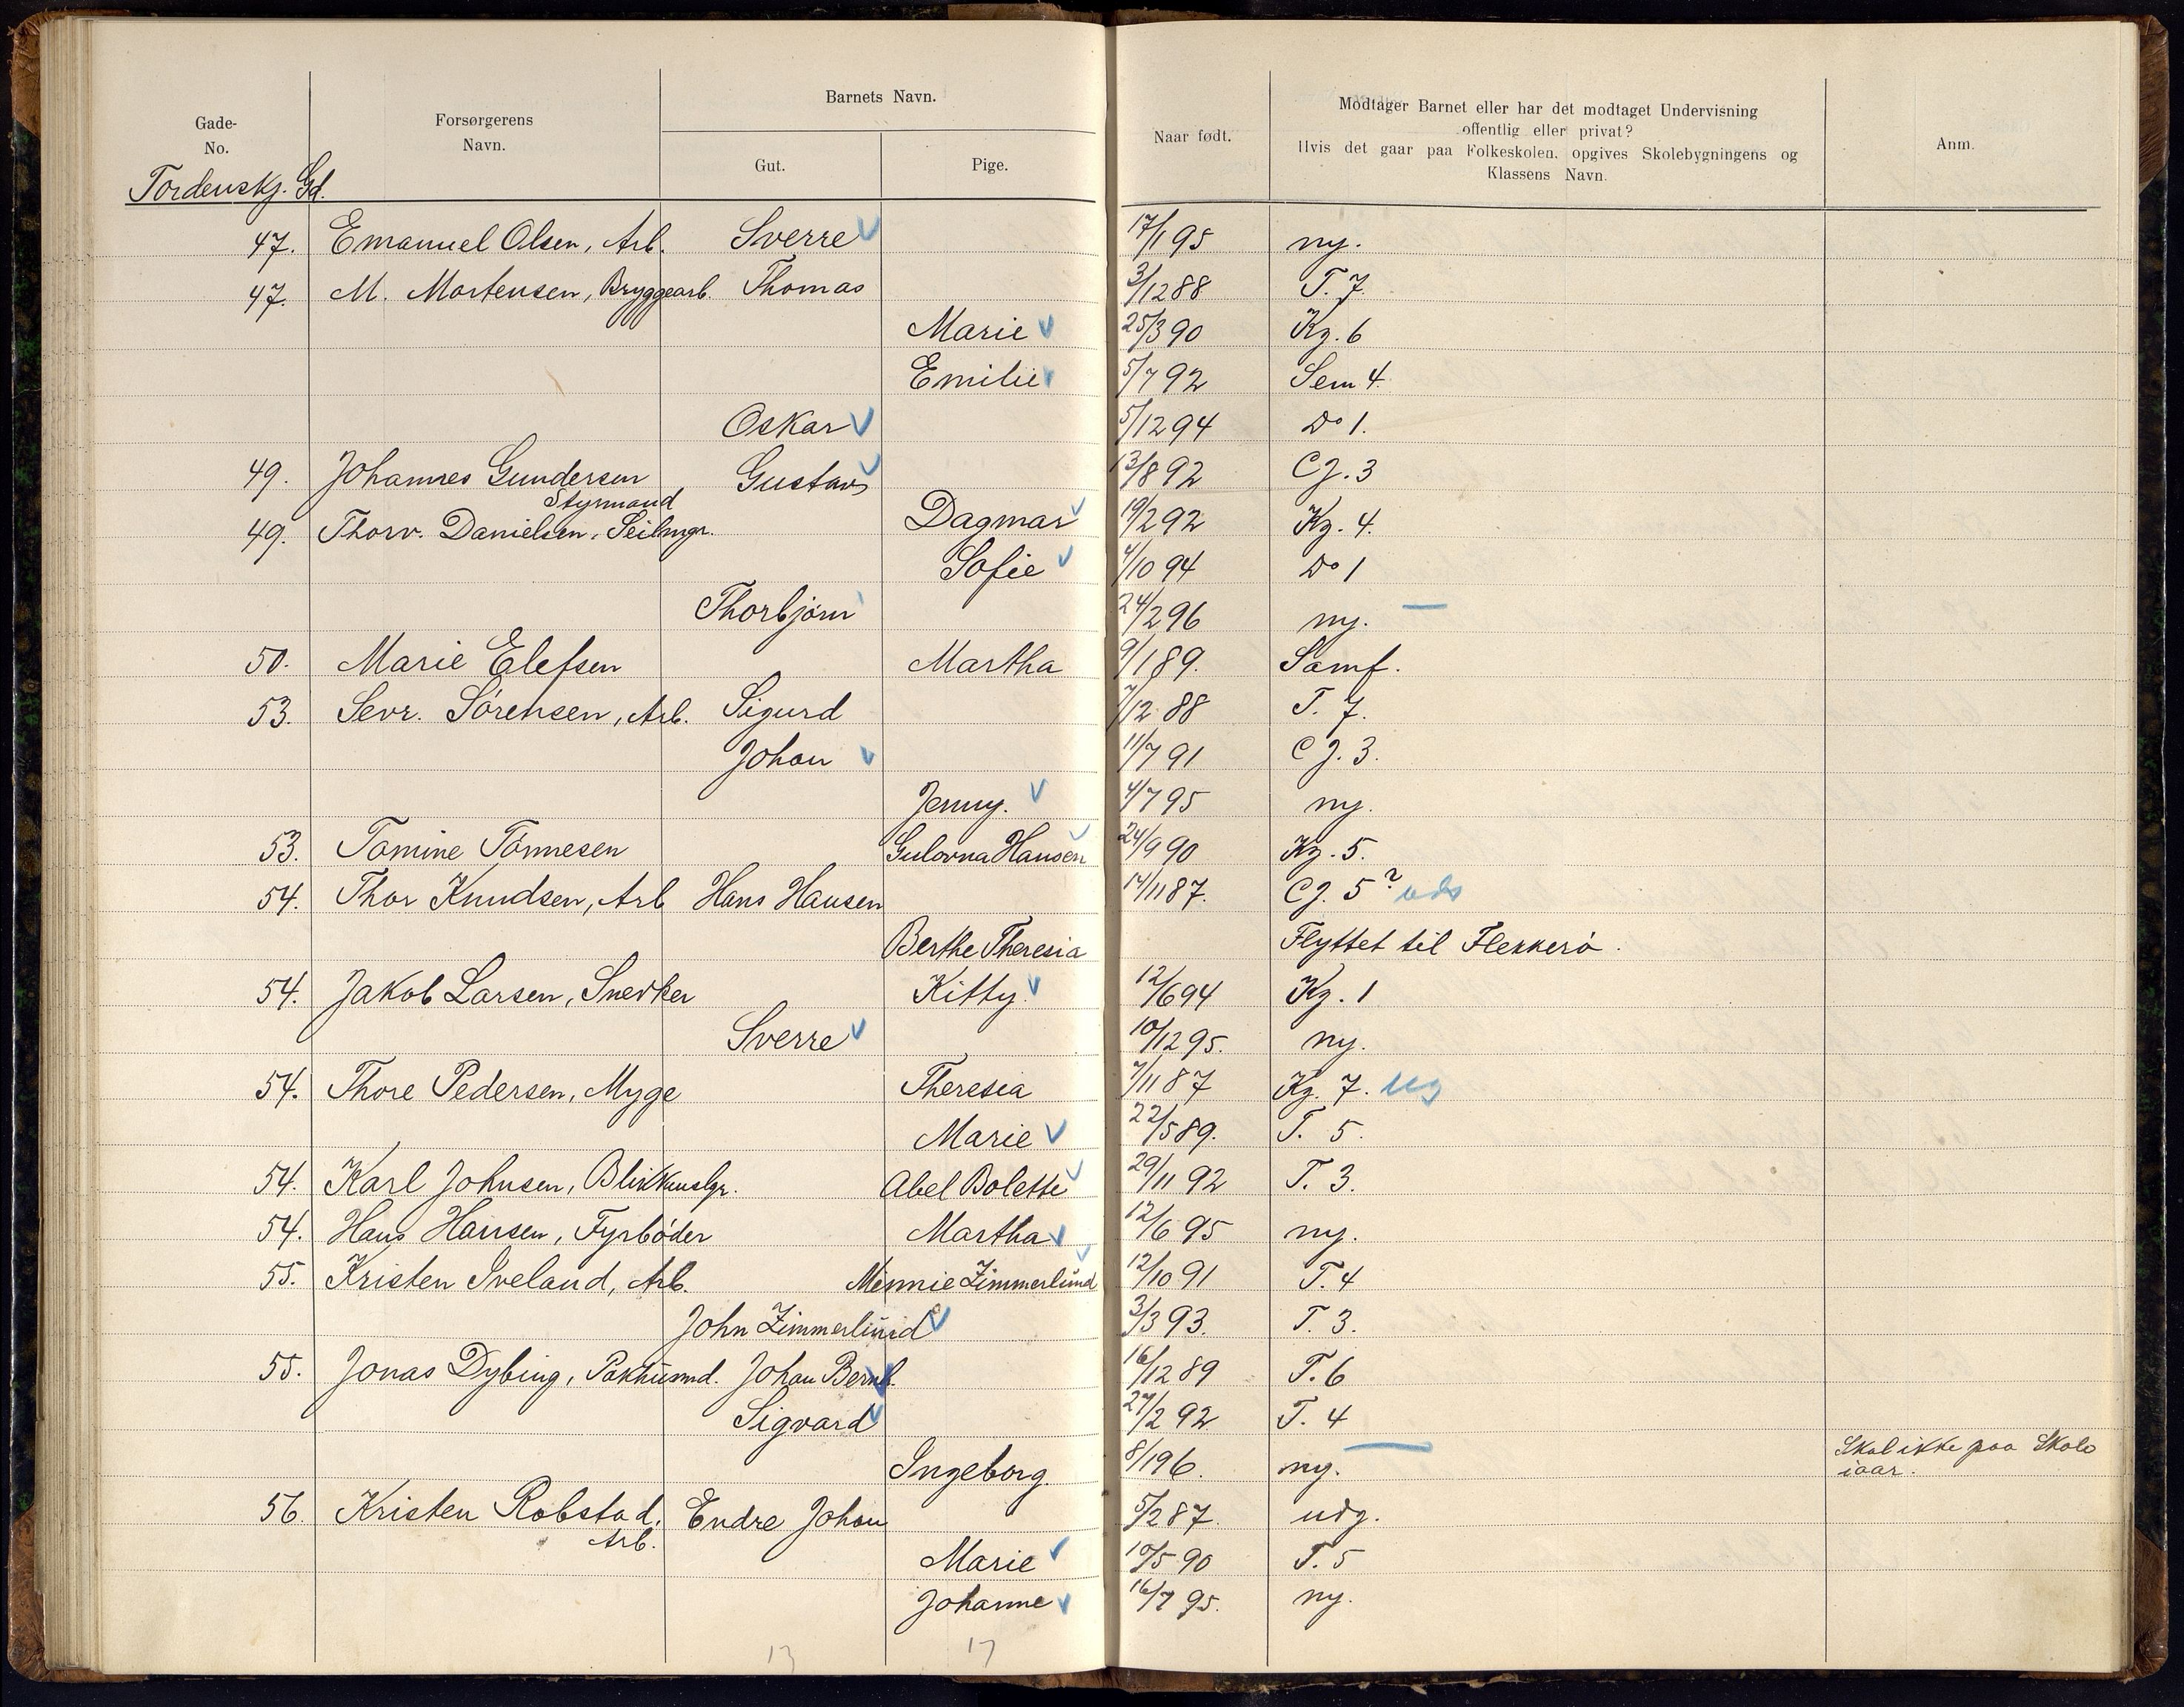 Gade-
No.
Forsørgerens
Navn.
Barnets Navn.
Gut.
Pige.
Naar født.
Modtager Barnet eller har det modtaget Undervisning
offentlig eller privat?
Hvis det gaar paa Folkeskolen, opgives Skolebygningens og
Klassens Navn.
Anm.
Tordenskj. Gd.
47. Emanuel Olsen, Arb. Sverre 17/1 95 ny.
47. M. Mortensen, Bryggearb. Thomas 3/12 88 T. 7.
Marie 25/3 90 Kg. 6
Emilie 5/7 92 Sem 4.
Oskar 5/12 94 Do 1.
49. Johannes Gundersen Gustav 13/8 92 CJ. 3
Styrmand
49. Thorv. Danielsen, Seilmgr. Dagmar 19/2 92 Kg. 4.
Sofie 4/10 94 Do 1
Thorbjørn 24/2 96 ny.
50. Marie Elefsen Martha 9/1 89. Samf.
53. Sevr. Sørensen, Arb. Sigurd 7/12 88 T. 7.
Johan 11/7 91 CJ. 3.
Jenny. 4/7 95 ny.
53. Tomine Tønnesen Gulovna Hansen 24/9 90 Kg. 5.
54. Thor Knudsen, Arb Hans Hansen 14/11 87. CJ. 5?
Berthe Theresia Flyttet til Flekkerø.
54. Jakob Larsen, Snedker Kitty. 12/6 94 Kg. 1
Sverre 10/12 95. ny.
54. Thore Pedersen, Myge Theresia 7/11 87 Kg. 7.
Marie 22/5 89. T. 5.
54. Karl Johnsen, Blikkenslgr. Abel Bolette 29/11 92 T. 3.
54. Hans Hansen, Fyrbøder Martha 12/6 95 ny.
55. Kristen Sveland, Arb. Minnie Zimmerlund 12/10 91 T. 4
John Zimmerlund 3/3 93. T. 3.
55. Jonas Dybing, Pakhusmd. Johan Bernh. 16/12 89 T. 6
Sigvard 27/2 92. T. 4
Ingeborg 8/1 96. ny. Skal ikke paa Skole
iaar.
56. Kristen Robstad, Endre Johan 5/2 87. udg.
Arb.
Marie 10/5 90 T. 5
Johanne 16/7 95. ny.
13 17